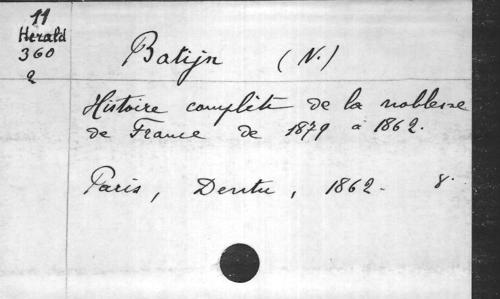 11
Herald
360
2
Batijn (N.)
Histoire complète de la noblesse
de France de 1879 à 1862.
Paris, Dentu, 1862. 8.